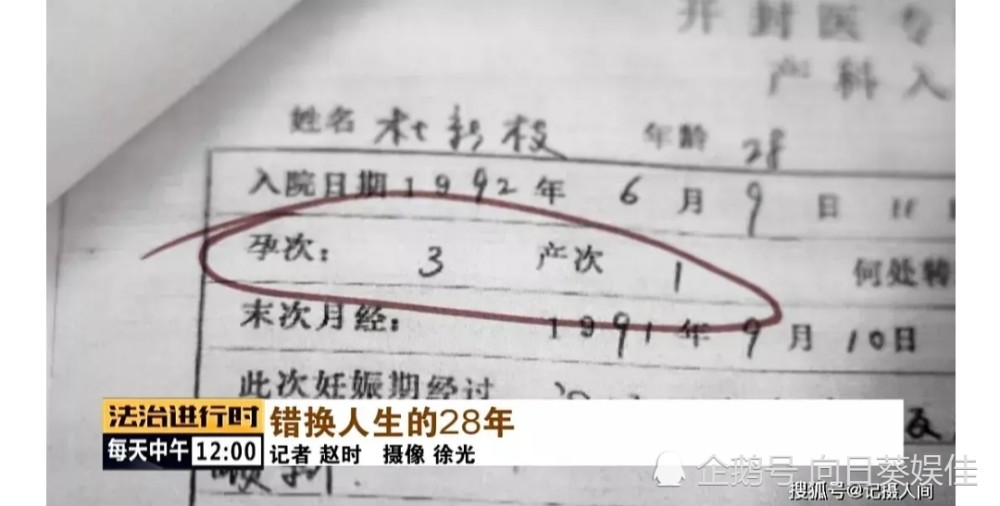 开封医专
产科入
姓名 杜新枝 年龄 28
入院日期 1992年 6月 9日
孕次: 3 产次 1 何处转
末次月经: 1991年 9月 10日
此次妊娠期经过
顺利.
法治进行时 错换人生的28年
每天中午 12:00 记者 赵时 摄像 徐光
企鹅号 向日葵娱佳
搜狐号@记摄人间